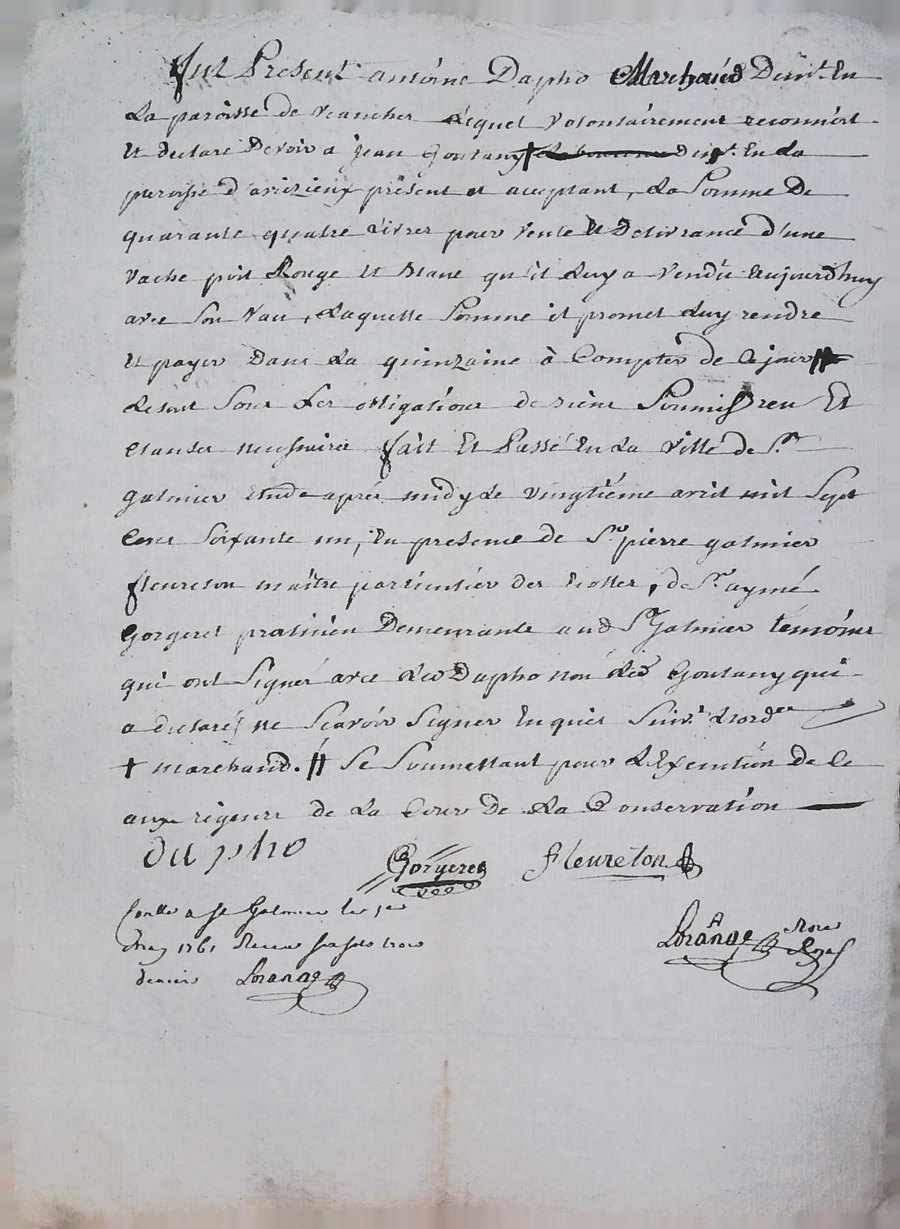 fut Present antoine Dapho Marchand Demt. En
La paroisse de veaucher Lequel volontairement reconnoit
Et declare Devoir a jean Goutany + Demt. En La
paroisse d'avizieux présent et aceptant, La Somme De
quarante quatre Livres pour vente Et Delivrance d'une
vache poil Rouge Et blanc qu'il Luy a vendu aujourdhuy
avec Son vau, Laquelle Somme il promet Luy rendre
Et payer Dans La quinzaine à Compter de Ce jour //
Le tout Sous Les obligations de biens Soumis, reu Et
Clauses necessaires fait Et Passé En La ville de St.
galmier étude après midy Le vingtième avril mil Sept
Cent Soixante un, En presence de Sr. pierre galmier
fleureton maître particulier des , de Sr. aymé
Gorgeret praticien Demeurants aud St. Galmier temoins
qui ont Signé avec Led Dapho non Led Goutany qui
a declaré ne Scavoir Signer Enquis Suivt. L'ord
+ marchand. // Se Soumettant pour L'Execution de Ce
aux rigeurs de La Cour De La Conservation
Dapho
Gorgeret fleureton
Contlé a St Galmier le
may 1761 Receu six sols trois
deniers Lorange
Lorange Nore
Royal